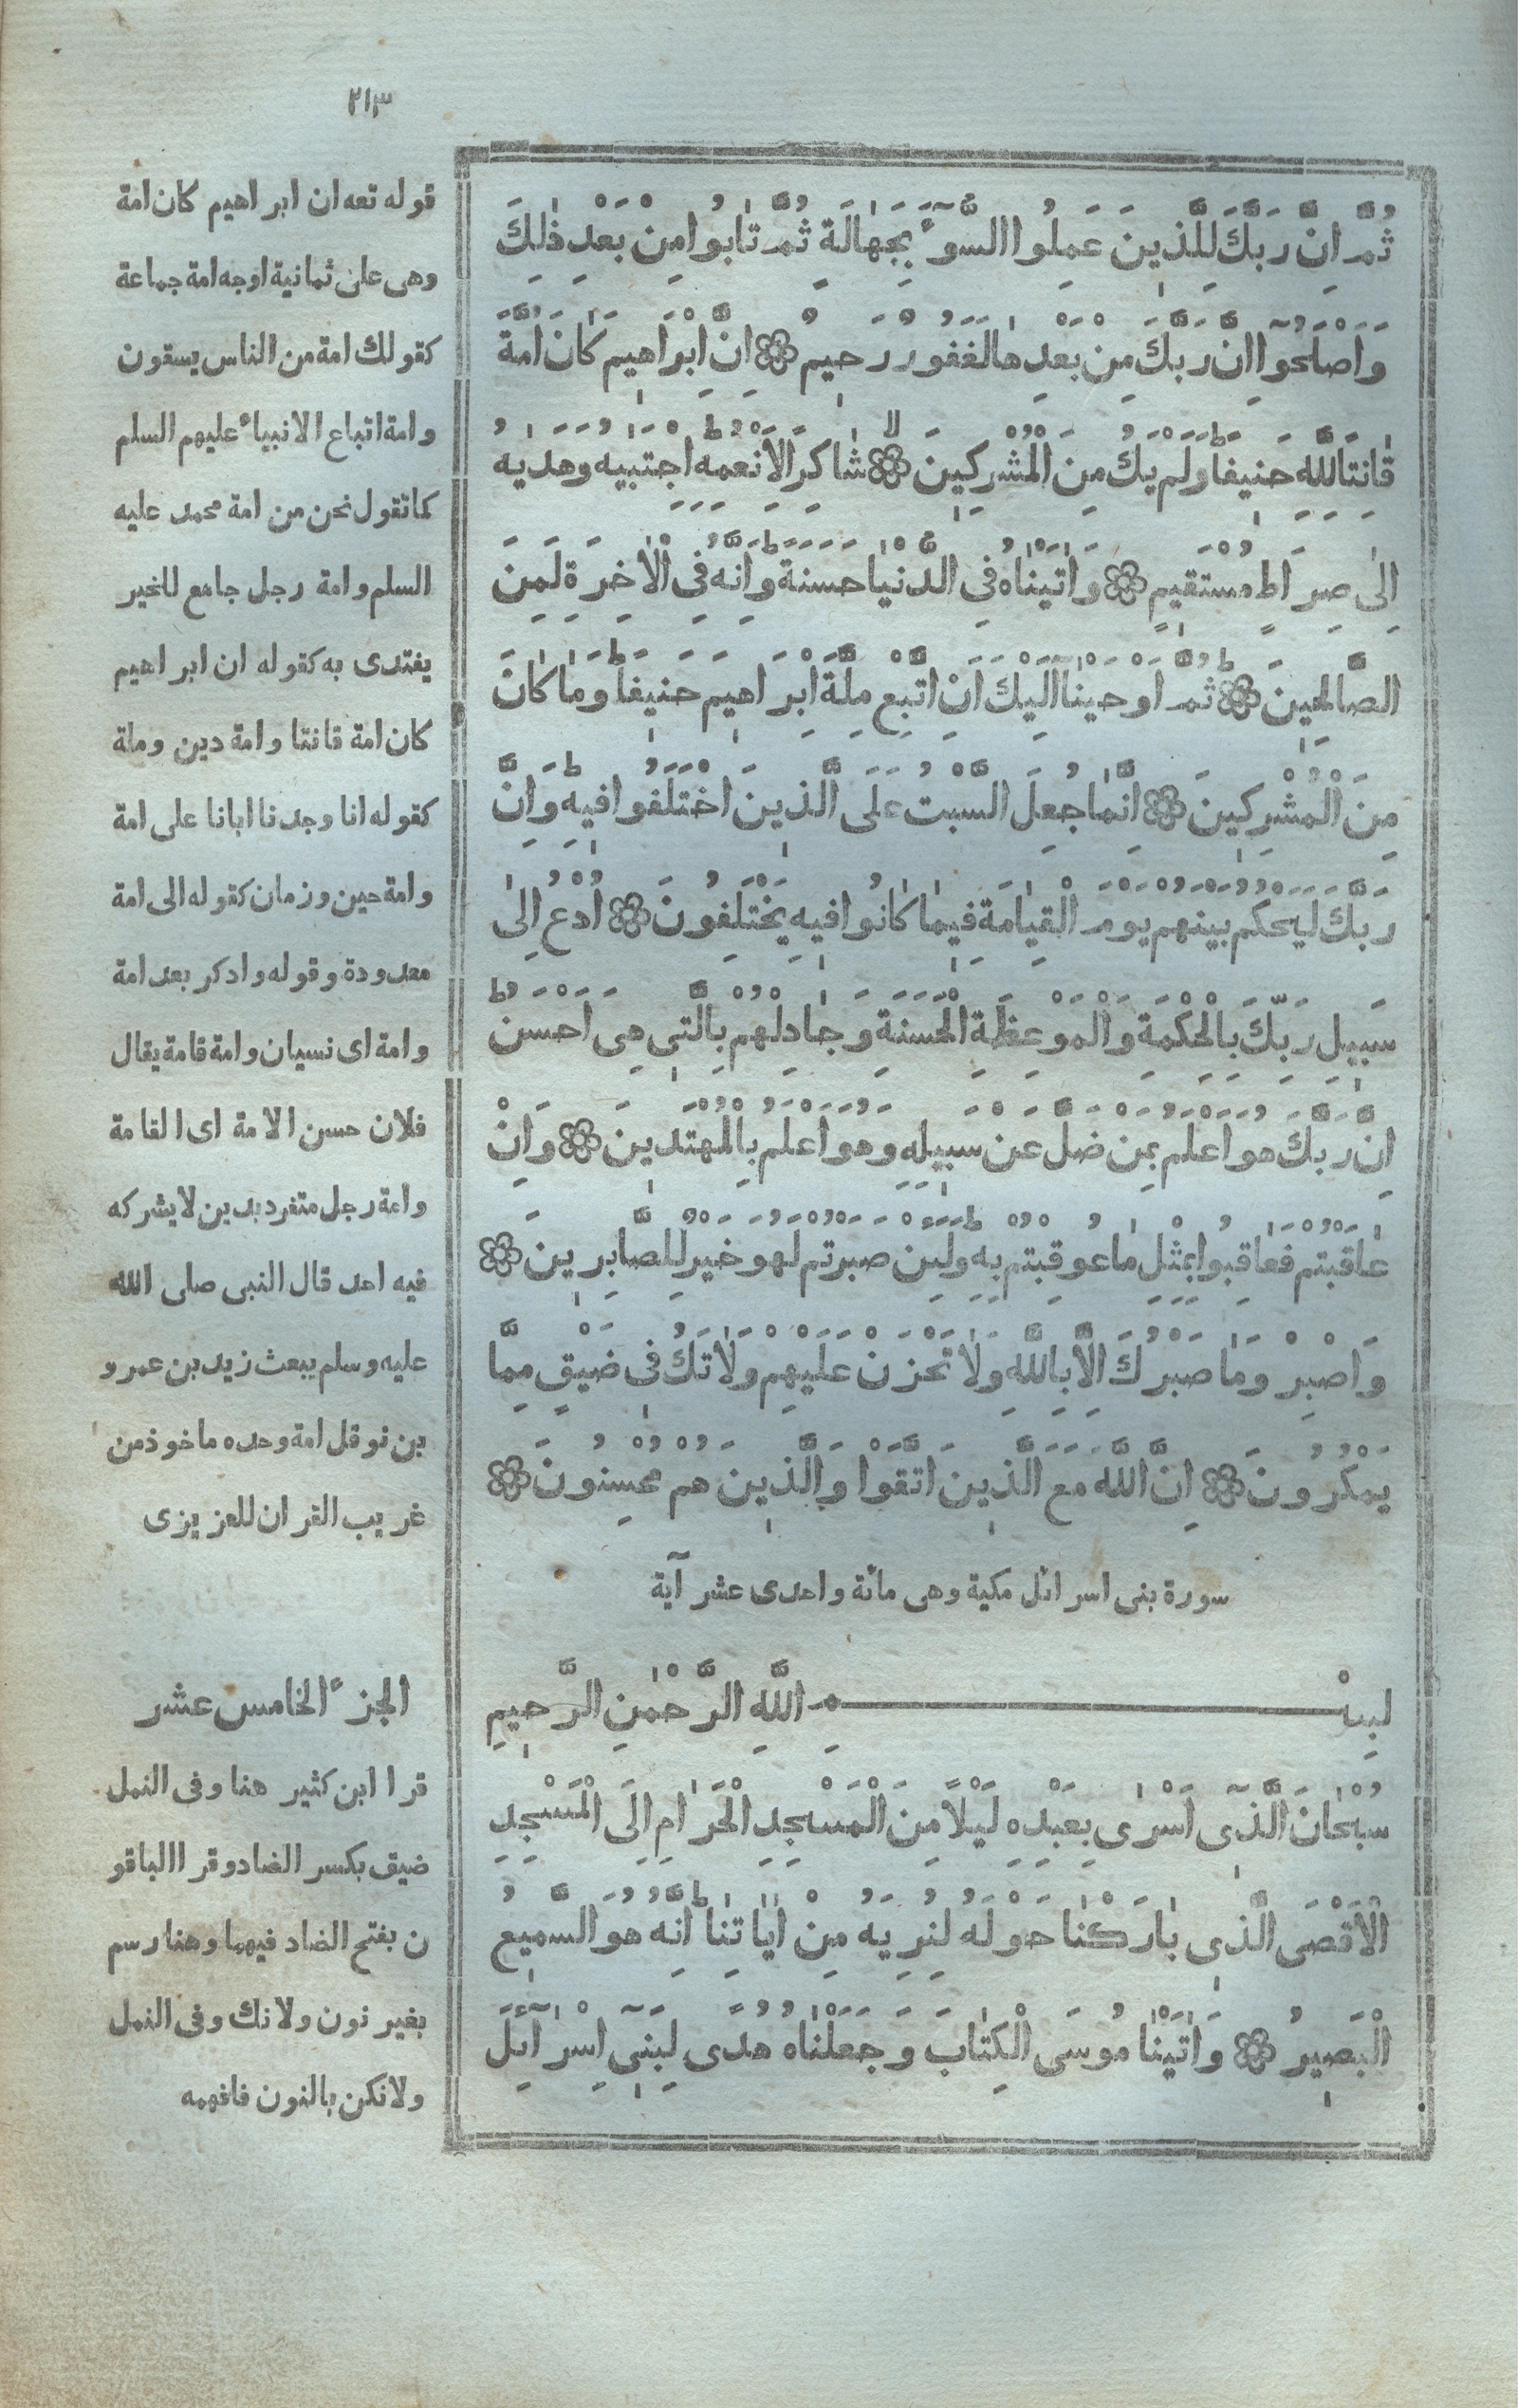 ٢١٣
ثُمَّ اِنَّ رَبَّكَ لِلَّذِينَ عَمِلُوا السُّوٓءَ بِجَهٰالَةٍ ثُمَّ تٰابُوا مِنْ بَعْدِ ذٰلِكَ
وَاَصْلَحُوٓا اِنَّ رَبَّكَ مِنْ بَعْدِهٰا لَغَفُورٌ رَحِيمٌ ۞ اِنَّ اِبْرٰاهِيمَ كٰانَ اُمَّةً
قٰانِتًا لِلَّهِ حَنِيفًاۖ وَلَمْ يَكُ مِنَ الْمُشْرِكِينَۙ ۞ شٰاكِرًا لِاَنْعُمِهِۖ اِجْتَبٰيهُ وَهَدٰيهُ
اِلٰى صِرٰاطٍ مُسْتَقِيمٍ ۞ وَاٰتَيْنٰاهُ فِى الدُّنْيٰا حَسَنَةًۖ وَاِنَّهُ فِى الْاٰخِرَةِ لَمِنَ
الصَّالِحِينَۖ ۞ ثُمَّ اَوْحَيْنٰآ اِلَيْكَ اَنِ اتَّبِعْ مِلَّةَ اِبْرٰاهِيمَ حَنِيفًاۖ وَمٰا كٰانَ
مِنَ الْمُشْرِكِينَ ۞ اِنَّمٰا جُعِلَ السَّبْتُ عَلَى الَّذِينَ اخْتَلَفُوا فِيهِۖ وَاِنَّ
رَبَّكَ لَيَحْكُمُ بَيْنَهُمْ يَوْمَ الْقِيٰامَةِ فِيمٰا كٰانُوا فِيهِ يَخْتَلِفُونَ ۞ اُدْعُ اِلٰى
سَبِيلِ رَبِّكَ بِالْحِكْمَةِ وَالْمَوْعِظَةِ الْحَسَنَةِ وَجٰادِلْهُمْ بِالَّتِى هِىَ اَحْسَنُۖ
اِنَّ رَبَّكَ هُوَ اَعْلَمُ بِمَنْ ضَلَّ عَنْ سَبِيلِهِ وَهُوَ اَعْلَمُ بِالْمُهْتَدِينَ ۞ وَاِنْ
عٰاقَبْتُمْ فَعٰاقِبُوا بِمِثْلِ مٰا عُوقِبْتُمْ بِهِۖ وَلَئِنْ صَبَرْتُمْ لَهُوَ خَيْرٌ لِلصّٰابِرِينَ ۞
وَاصْبِرْ وَمٰا صَبْرُكَ اِلَّا بِاللَّهِ وَلٰا تَحْزَنْ عَلَيْهِمْ وَلٰا تَكُ فِى ضَيْقٍ مِمَّا
يَمْكُرُونَ ۞ اِنَّ اللَّهَ مَعَ الَّذِينَ اتَّقَوْا وَالَّذِينَ هُمْ مُحْسِنُونَ ۞
سورة بنى اسرائل مكية وهى مائة واحدى عشر آية
بِسْمِ اللَّهِ الرَّحْمٰنِ الرَّحِيمِ
سُبْحٰانَ الَّذِٓى اَسْرٰى بِعَبْدِهِ لَيْلًا مِنَ الْمَسْجِدِ الْحَرٰامِ اِلَى الْمَسْجِدِ
الْاَقْصَى الَّذِى بٰارَكْنٰا حَوْلَهُ لِنُرِيَهُ مِنْ اٰيٰاتِنٰاۖ اِنَّهُ هُوَ السَّمِيعُ
الْبَصِيرُ ۞ وَاٰتَيْنٰا مُوسَى الْكِتٰابَ وَجَعَلْنٰاهُ هُدًى لِبَنِٓى اِسْرٰآئِلَ
قوله تعه ان ابراهيم كان امة
وهى على ثمانية اوجه امة جماعة
كقولك امة من الناس يسقون
وامة اتباع الانبياء عليهم السلم
كما تقول نحن من امة محمد عليه
السلم وامة رجل جامع للخير
يفتدى به كقوله ان ابراهيم
كان امة قانتا وامة دين وملة
كقوله انا وجدنا ابانا على امة
وامة حين وزمان كقوله الى امة
معدودة وقوله وادكر بعد امة
وامة اى نسيان وامة قامة يقال
فلان حسن الامة اى القامة
وامة رجل متفرد بدين لا يشركه
فيه احد قال النبى صلى الله
عليه وسلم يبعث زيد بن عمرو
بن نوفل امة وحده ماخوذ من
غريب القران للعزيزى
الجزء الخامس عشر
قرا ابن كثير هنا وفى النمل
ضيق بكسر الضاد وقرا الباقو
ن بفتح الضاد فيهما وهنا رسم
بغير نون ولا تك وفى النمل
ولا تكن بالنون فافهمه